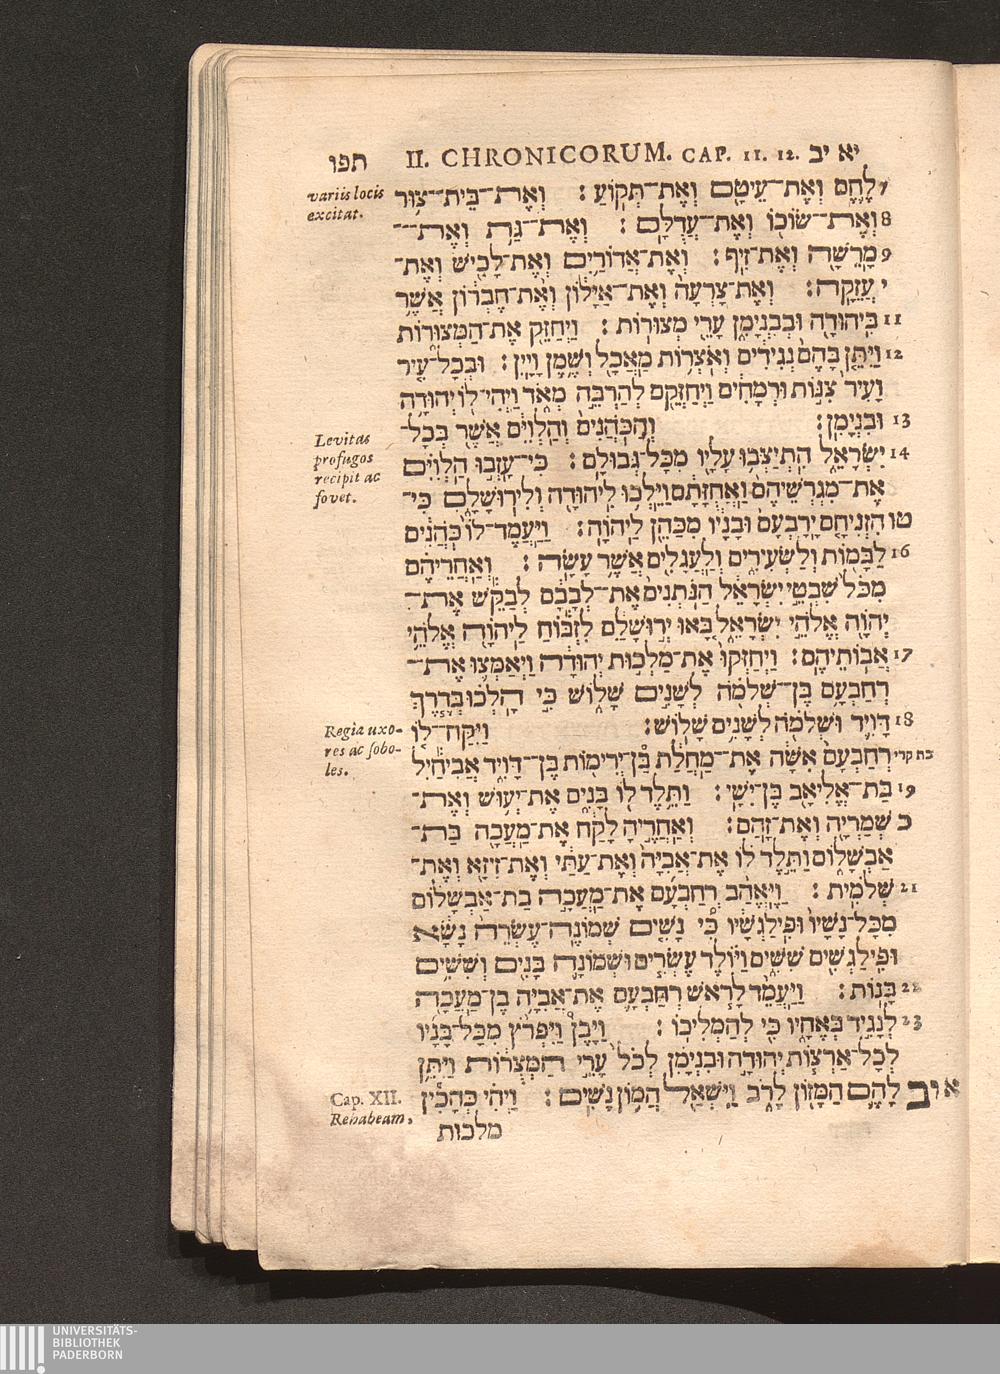 תפו II. CHRONICORUM. CAP. 11. 12. יא יב
variis locis
excitat.
7 לֶ֥חֶם וְאֶת־עֵיטָ֖ם וְאֶת־תְּקֽוֹעַ׃ וְאֶת־בֵּית־צ֥וּר
8 וְאֶת־שׂוֹכ֖וֹ וְאֶת־עֲדֻלָּֽם׃ וְאֶת־גַּ֥ת וְאֶת־
9 מָרֵשָׁ֖ה וְאֶת־זִֽיף׃ וְאֶת־אֲדוֹרַ֥יִם וְאֶת־לָכִ֖ישׁ וְאֶת־
י עֲזֵקָֽה׃ וְאֶת־צָרְעָה֙ וְאֶת־אַיָּל֔וֹן וְאֶת־חֶבְר֔וֹן אֲשֶׁ֥ר
11 בִּיהוּדָ֖ה וּבְבִנְיָמִ֑ן עָרֵ֖י מְצוּרֽוֹת׃ וַיְחַזֵּ֖ק אֶת־הַמְּצוּר֑וֹת
12 וַיִּתֵּ֤ן בָּהֶם֙ נְגִידִ֔ים וְאֹצְר֥וֹת מַאֲכָ֖ל וְשֶׁ֥מֶן וָיָֽיִן׃ וּבְכָל־עִ֤יר
וָעִיר֙ צִנּ֣וֹת וּרְמָחִ֔ים וַֽיְחַזְּקֵ֖ם לְהַרְבֵּ֣ה מְאֹ֑ד וַֽיְהִי־ל֖וֹ יְהוּדָ֥ה
13 וּבִנְיָמִֽן׃ וְהַכֹּֽהֲנִים֙ וְהַלְוִיִּ֔ם אֲשֶׁ֖ר בְּכָל־
Levitas
profugos
recipit ac
fovet.
14 יִשְׂרָאֵ֑ל הִֽתְיַצְּב֥וּ עָלָ֖יו מִכָּל־גְּבוּלָֽם׃ כִּֽי־עָזְב֣וּ הַלְוִיִּ֗ם
אֶת־מִגְרְשֵׁיהֶם֙ וַאֲחֻזָּתָ֔ם וַיֵּלְכ֥וּ לִיהוּדָ֖ה וְלִירֽוּשָׁלָ֑͏ִם כִּֽי־
טו הִזְנִיחָ֤ם יָֽרָבְעָם֙ וּבָנָ֔יו מִכַּהֵ֖ן לַיהוָֽה׃ וַיַּֽעֲמֶד־לוֹ֙ כֹּֽהֲנִ֔ים
16 לַבָּמ֖וֹת וְלַשְּׂעִירִ֑ים וְלָעֲגָלִ֖ים אֲשֶׁ֥ר עָשָֽׂה׃ וְאַחֲרֵיהֶ֗ם
מִכֹּל֙ שִׁבְטֵ֣י יִשְׂרָאֵ֔ל הַנֹּֽתְנִים֙ אֶת־לְבָבָ֔ם לְבַקֵּ֕שׁ אֶת־
יְהוָ֖ה אֱלֹהֵ֣י יִשְׂרָאֵ֑ל בָּ֚אוּ יְר֣וּשָׁלַ֔͏ִם לִזְבּ֕וֹחַ לַיהוָ֖ה אֱלֹהֵ֥י
17 אֲבוֹתֵיהֶֽם׃ וַֽיְחַזְּקוּ֙ אֶת־מַלְכ֣וּת יְהוּדָ֔ה וַֽיְאַמְּצ֛וּ אֶת־
רְחַבְעָ֥ם בֶּן־שְׁלֹמֹ֖ה לְשָׁנִ֣ים שָׁל֑וֹשׁ כִּ֣י הָֽלְכ֗וּ בְּדֶ֧רֶךְ
18 דָּוִ֛יד וּשְׁלֹמֹ֖ה לְשָׁנִ֥ים שָׁלֽוֹשׁ׃ וַיִּֽקַּֽח־ל֤וֹ
Regiæ uxo-
res ac sobo-
les.
רְחַבְעָם֙ אִשָּׁ֔ה אֶֽת־מָ֣חֲלַ֔ת בֶּן־יְרִימ֖וֹת בֶּן־דָּוִ֑יד אֲבִיחַ֕יִל בת קרי
19 בַּת־אֱלִיאָ֖ב בֶּן־יִשָֽׁי׃ וַתֵּ֥לֶד ל֖וֹ בָּנִ֑ים אֶת־יְע֥וּשׁ וְאֶת־
כ שְׁמַרְיָ֖ה וְאֶת־זָֽהַם׃ וְאַחֲרֶ֣יהָ לָקַ֔ח אֶֽת־מַעֲכָ֖ה בַּת־
אַבְשָׁל֑וֹם וַתֵּ֣לֶד ל֗וֹ אֶת־אֲבִיָּה֙ וְאֶת־עַתַּ֔י וְאֶת־זִיזָ֖א וְאֶת־
21 שְׁלֹמִֽית׃ וַיֶּאֱהַ֨ב רְחַבְעָ֜ם אֶת־מַעֲכָ֣ה בַת־אַבְשָׁל֗וֹם
מִכָּל־נָשָׁיו֙ וּפִ֣ילַגְשָׁ֔יו כִּ֠י נָשִׁ֤ים שְׁמוֹנֶֽה־עֶשְׂרֵה֙ נָשָׂ֔א
וּפִֽילַגְשִׁ֖ים שִׁשִּׁ֑ים וַיּ֗וֹלֶד עֶשְׂרִ֧ים וּשְׁמוֹנָ֛ה בָּנִ֖ים וְשִׁשִּׁ֥ים
22 בָּנֽוֹת׃ וַיַּֽעֲמֵ֨ד לָרֹ֧אשׁ רְחַבְעָ֛ם אֶת־אֲבִיָּ֥ה בֶֽן־מַעֲכָ֖ה
23 לְנָגִ֣יד בְּאֶחָ֑יו כִּ֖י לְהַמְלִיכֽוֹ׃ וַיָּבֶן֩ וַיִּפְרֹ֨ץ מִכָּל־בָּנָ֜יו
לְֽכָל־אַרְצ֧וֹת יְהוּדָ֣ה וּבִנְיָמִ֗ן לְכֹל֙ עָרֵ֣י הַמְּצֻר֔וֹת וַיִּתֵּ֥ן
א יב לָהֶ֛ם הַמָּז֖וֹן לָרֹ֑ב וַיִּשְׁאַ֖ל הֲמ֥וֹן נָשִֽׁים׃ וַיְהִ֗י כְּהָכִ֞ין
Cap. XII.
Rehabeam,
מלכות
UNIVERSITÄTS-
BIBLIOTHEK
PADERBORN